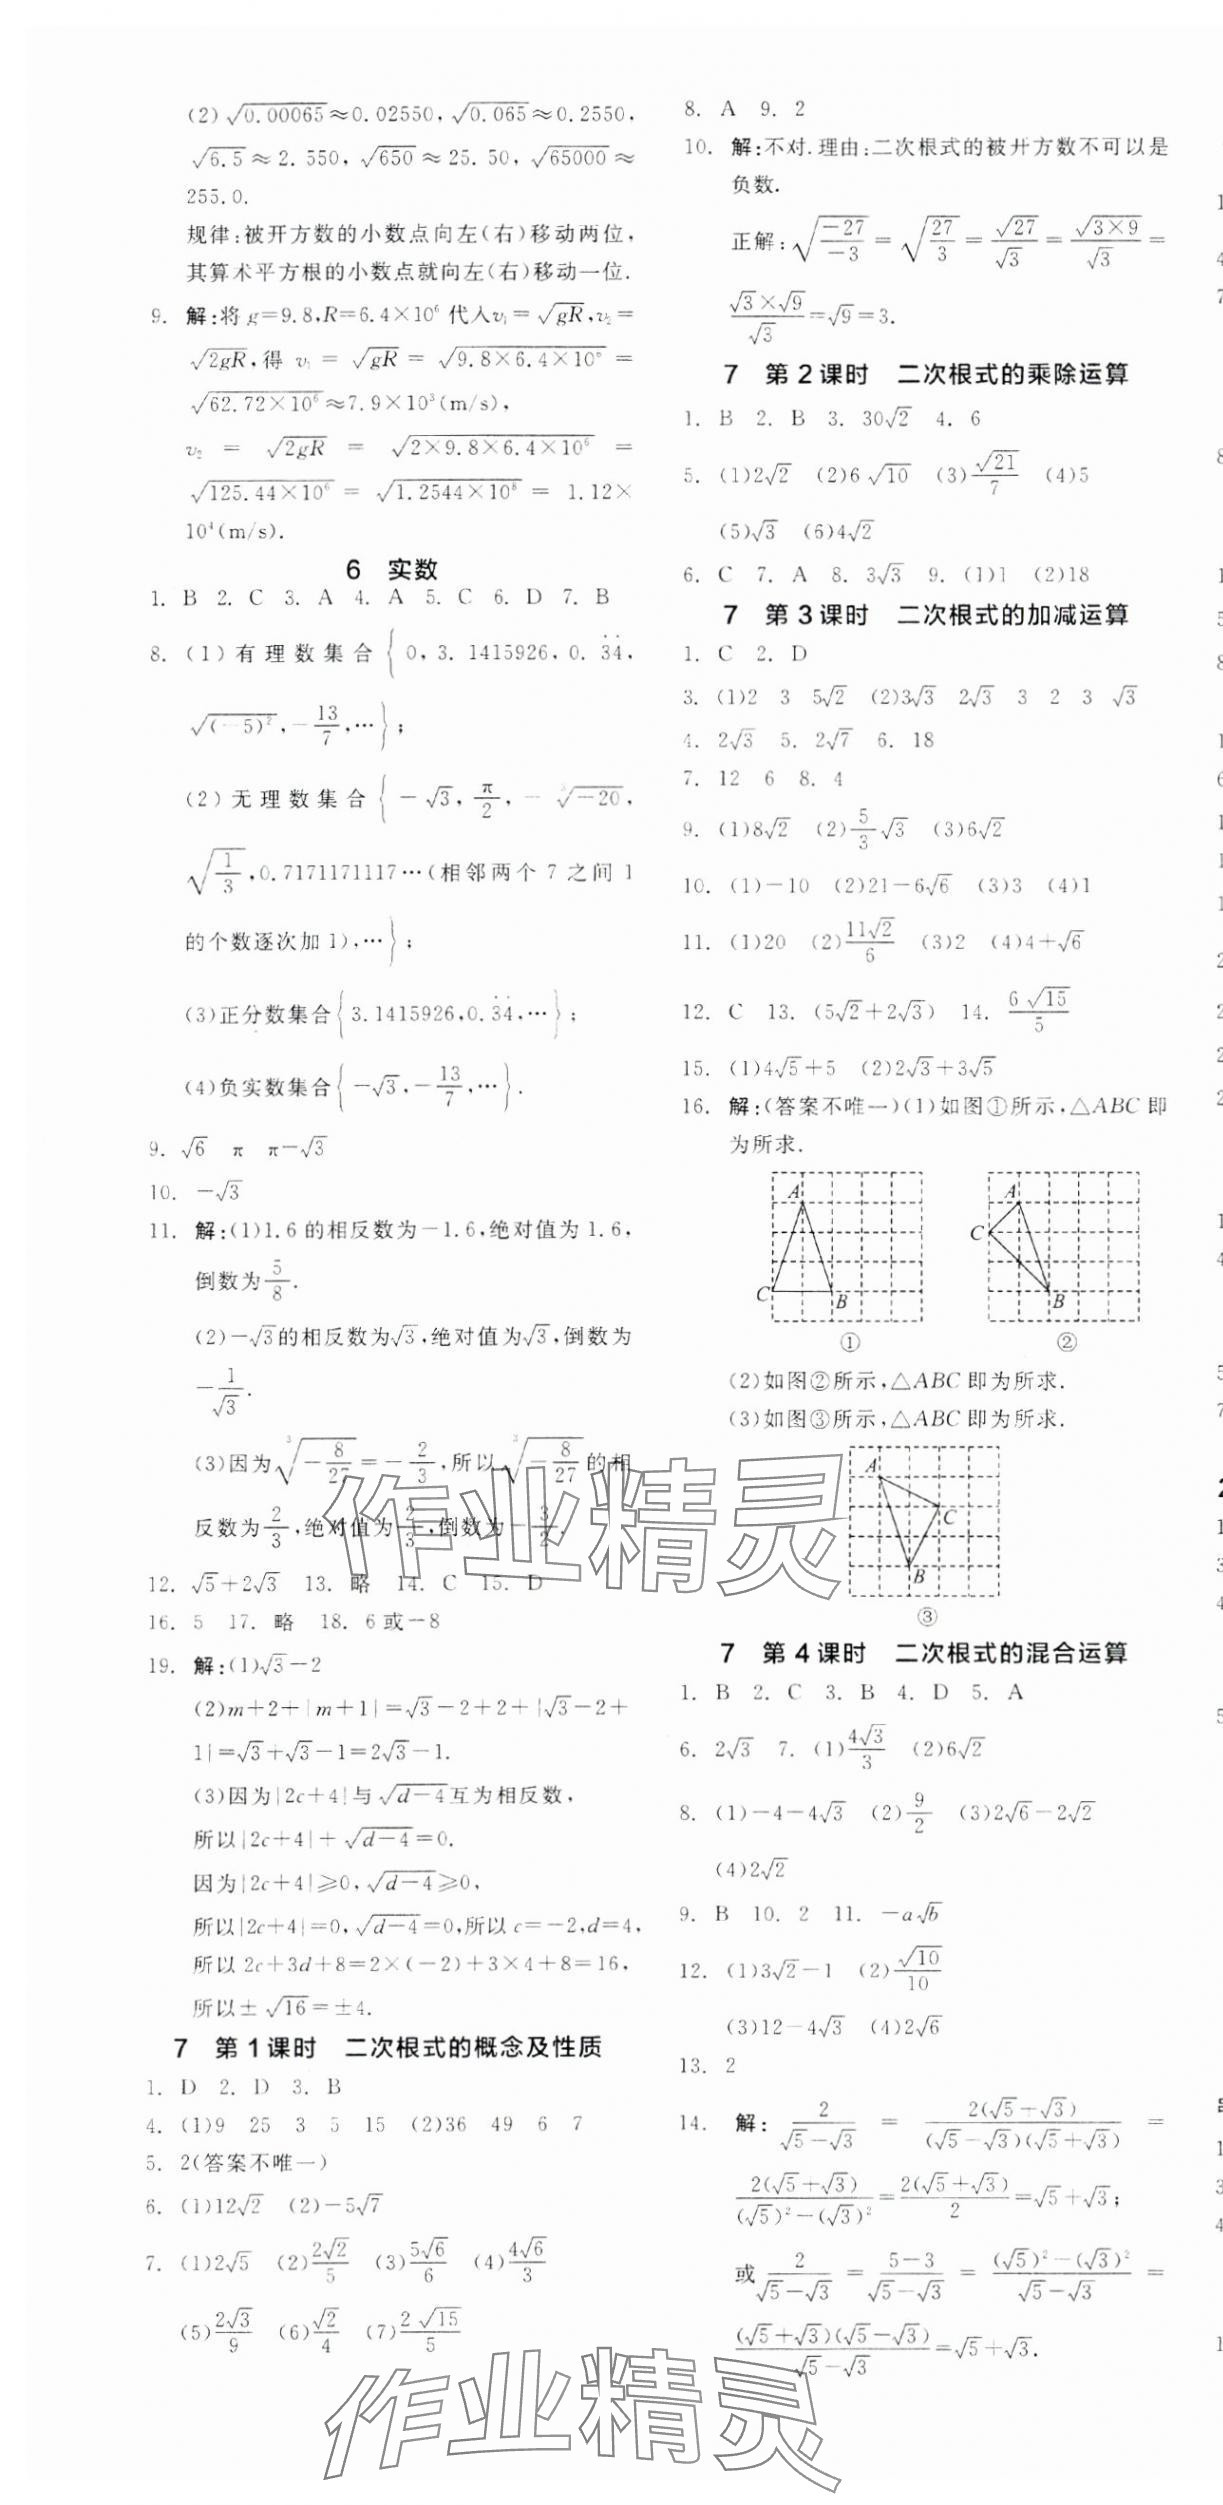 (2)√0.00065≈0.02550,√0.065≈0.2550,
√6.5≈2.550,√650≈25.50,√65000≈
255.0.
规律:被开方数的小数点向左(右)移动两位,
其算术平方根的小数点就向左(右)移动一位.
9. 解:将g=9.8,R=6.4×10⁶代入v₁=√gR,v₂=
√2gR,得 v₁=√gR=√9.8×6.4×10⁶=
√62.72×10⁶≈7.9×10³(m/s),
v₂=√2gR=√2×9.8×6.4×10⁶=
√125.44×10⁶=√1.2544×10⁸=1.12×
10⁴(m/s).
6 实数
1. B 2. C 3. A 4. A 5. C 6. D 7. B
8. (1)有理数集合{0,3.1415926,0.3̇4̇,
√(-5)²,-13/7,…};
(2)无理数集合{-√3,π/2,-∛-20,
√(1/3),0.7171171117…(相邻两个7之间1
的个数逐次加1),…};
(3)正分数集合{3.1415926,0.3̇4̇,…};
(4)负实数集合{-√3,-13/7,…}.
9. √6 π π-√3
10. -√3
11. 解:(1)1.6的相反数为-1.6,绝对值为1.6,
倒数为5/8.
(2)-√3的相反数为√3,绝对值为√3,倒数为
-1/√3.
(3)因为∛(-8/27)=-2/3,所以∛(-8/27)的相
反数为2/3,绝对值为2/3,倒数为-3/2.
12. √5+2√3 13. 略 14. C 15. D
16. 5 17. 略 18. 6或-8
19. 解:(1)√3-2
(2)m+2+|m+1|=√3-2+2+|√3-2+
1|=√3+√3-1=2√3-1.
(3)因为|2c+4|与√d-4互为相反数,
所以|2c+4|+√d-4=0.
因为|2c+4|≥0,√d-4≥0,
所以|2c+4|=0,√d-4=0,所以c=-2,d=4,
所以2c+3d+8=2×(-2)+3×4+8=16,
所以±√16=±4.
7 第1课时 二次根式的概念及性质
1. D 2. D 3. B
4. (1)9 25 3 5 15 (2)36 49 6 7
5. 2(答案不唯一)
6. (1)12√2 (2)-5√7
7. (1)2√5 (2)2√2/5 (3)5√6/6 (4)4√6/3
(5)2√3/9 (6)√2/4 (7)2√15/5
8. A 9. 2
10. 解:不对.理由:二次根式的被开方数不可以是
负数.
正解:√(-27/-3)=√(27/3)=√27/√3=√3×9/√3=
√3×√9/√3=√9=3.
7 第2课时 二次根式的乘除运算
1. B 2. B 3. 30√2 4. 6
5. (1)2√2 (2)6√10 (3)√21/7 (4)5
(5)√3 (6)4√2
6. C 7. A 8. 3√3 9. (1)1 (2)18
7 第3课时 二次根式的加减运算
1. C 2. D
3. (1)2 3 5√2 (2)3√3 2√3 3 2 3 √3
4. 2√3 5. 2√7 6. 18
7. 12 6 8. 4
9. (1)8√2 (2)5/3√3 (3)6√2
10. (1)-10 (2)21-6√6 (3)3 (4)1
11. (1)20 (2)11√2/6 (3)2 (4)4+√6
12. C 13. (5√2+2√3) 14. 6√15/5
15. (1)4√5+5 (2)2√3+3√5
16. 解:(答案不唯一)(1)如图①所示,△ABC即
为所求.
A C B ①
A C B ②
(2)如图②所示,△ABC即为所求.
(3)如图③所示,△ABC即为所求.
A C B ③
7 第4课时 二次根式的混合运算
1. B 2. C 3. B 4. D 5. A
6. 2√3 7. (1)4√3/3 (2)6√2
8. (1)-4-4√3 (2)9/2 (3)2√6-2√2
(4)2√2
9. B 10. 2 11. -a√b
12. (1)3√2-1 (2)√10/10
(3)12-4√3 (4)2√6
13. 2
14. 解:2/(√5-√3)=2(√5+√3)/(√5-√3)(√5+√3)=
2(√5+√3)/((√5)²-(√3)²)=2(√5+√3)/2=√5+√3;
或2/(√5-√3)=(5-3)/(√5-√3)=((√5)²-(√3)²)/(√5-√3)=
(√5+√3)(√5-√3)/(√5-√3)=√5+√3.
作业精灵
作业精灵